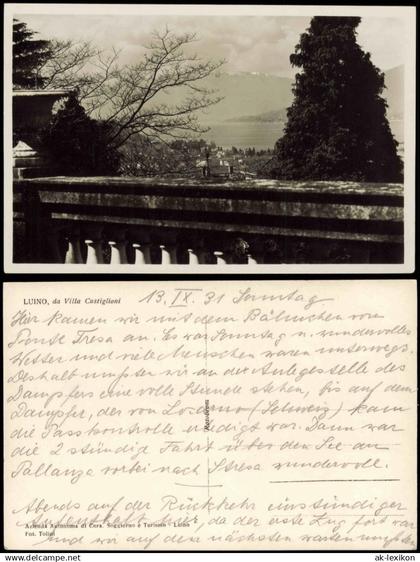 LUINO, da Villa Castiglioni
13. IX. 31 Sonntag
Hier kamen wir mit dem Bähnchen von
Ponte Tresa an. Es war Sonntag u. wundervolles
Wetter und viele Menschen waren unterwegs.
Deshalb mußten wir an der Anlegestelle des
Dampfers eine volle Stunde stehen, bis auf dem
Dampfer, der von Locarno (Schweiz) kam
die Passkontrolle erledigt war. Dann war
die 2 stündige Fahrt über den See an
Pallanza vorbei nach Stresa wundervoll.
Abends auf der Rückkehr einstündiger
Aufenthalt hier, da der erste Zug fort war
und wir auf den nächsten warten mußten
Azienda Autonoma di Cura, Soggiorno e Turismo - Luino
Fot. Tollini
www.ak-lexikon.de